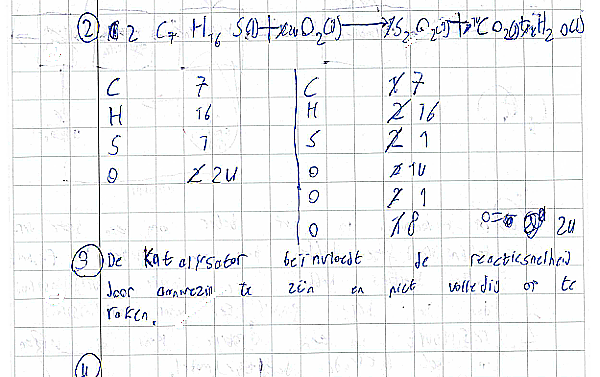 ② 2 C₇ H₁₆ S(l) + O₂(g) → S₂ O₂(g) + CO₂(g) + H₂ O(l)
C 7 C 7
H 16 H 16
S 1 S 1
O 24 O 14
O 1
O 8 O= 24
③ De Katalysator beïnvloedt de reactiesnelheid
door aanwezig te zijn en niet volledig op te
raken.